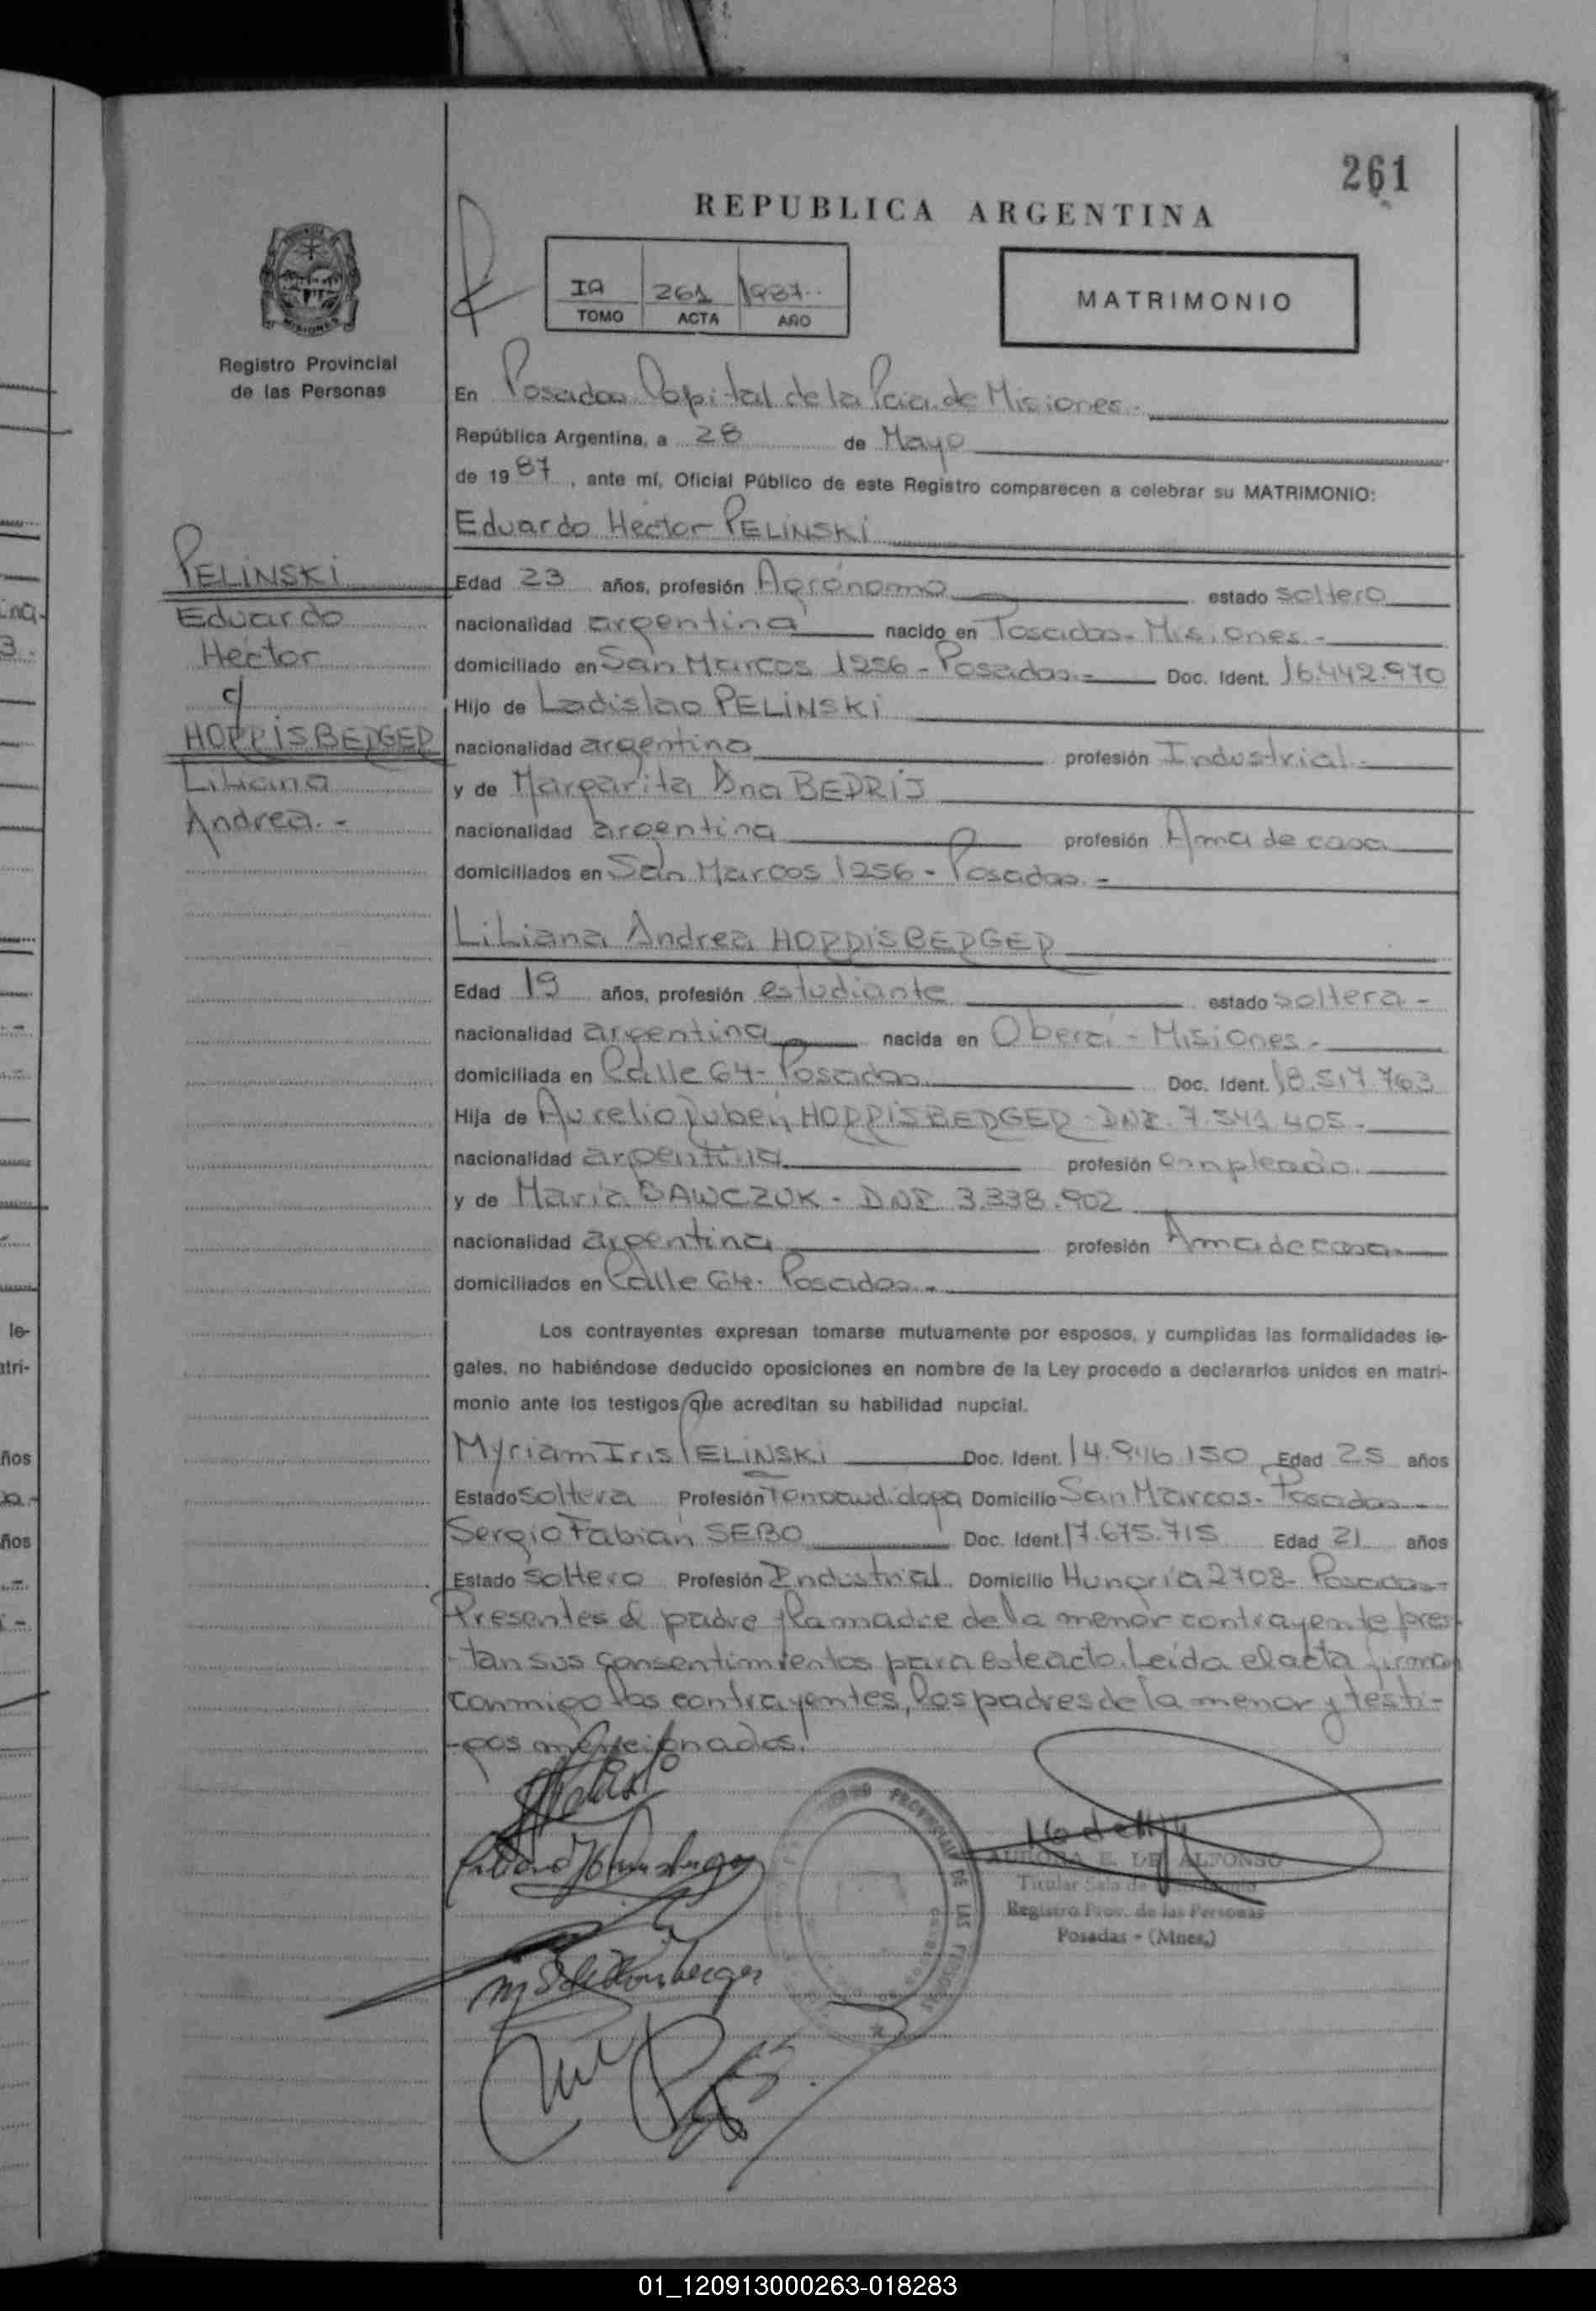 261
REPUBLICA ARGENTINA
IA 261 1987
TOMO ACTA AÑO
MATRIMONIO
MISIONES
Registro Provincial
de las Personas
En Posadas Capital de la Pcia. de Misiones.-
República Argentina, a 28 de Mayo
de 1987, ante mí, Oficial Público de este Registro comparecen a celebrar su MATRIMONIO:
Eduardo Hector PELINSKI
PELINSKI
Eduardo
Hector
c/
HORRISBERGER
Liliana
Andrea.-
Edad 23 años, profesión Agrónomo estado soltero
nacionalidad argentina nacido en Posadas- Misiones.-
domiciliado en San Marcos 1256 - Posadas.- Doc. Ident. 16.442.970
Hijo de Ladislao PELINSKI
nacionalidad argentina profesión Industrial.-
y de Margarita Ana BEDRIJ
nacionalidad argentina profesión Ama de casa
domiciliados en San Marcos 1256 - Posadas.-
Liliana Andrea HORRISBERGER
Edad 19 años, profesión estudiante estado soltera -
nacionalidad argentina nacida en Oberá - Misiones.-
domiciliada en Calle 64- Posadas Doc. Ident. 18.517.763
Hija de Aurelio Ruben HORRISBERGER - DNI. 7.541.405.-
nacionalidad argentina profesión empleado.
y de Maria SAWCZUK - DNI. 3.338.902
nacionalidad argentina profesión Ama de casa
domiciliados en Calle 64. Posadas.-
Los contrayentes expresan tomarse mutuamente por esposos, y cumplidas las formalidades le-
gales, no habiéndose deducido oposiciones en nombre de la Ley procedo a declararlos unidos en matri-
monio ante los testigos que acreditan su habilidad nupcial.
Myriam Iris PELINSKI Doc. Ident. 14.946.150 Edad 25 años
Estado soltera Profesión Fonoaudióloga Domicilio San Marcos- Posadas
Sergio Fabián SEBO Doc. Ident. 17.675.715 Edad 21 años
Estado soltero Profesión Industrial Domicilio Hungría 2708- Posadas-
Presentes el padre y la madre de la menor contrayente pres
tan sus consentimientos para este acto. Leída el acta firman
conmigo los contrayentes, los padres de la menor y testi-
gos mencionados.
AURORA E. DE ALFONSO
Titular Sala de
Registro Prov. de las Personas
Posadas - (Mnes.)
PROVINCIAL DE LAS PERSONAS
01_120913000263-018283